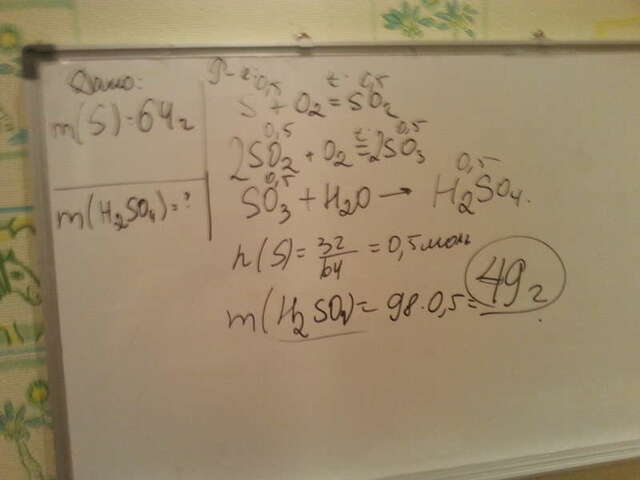 Дано:
m(S)=64г
m(H₂SO₄)=?
Р-е:
0,5 t° 0,5
S + O₂ = SO₂
0,5 t° 0,5
2SO₂ + O₂ = 2SO₃
0,5 0,5
SO₃ + H₂O → H₂SO₄.
n(S) = 32/64 = 0,5 моль
m(H₂SO₄) = 98·0,5 = 49г